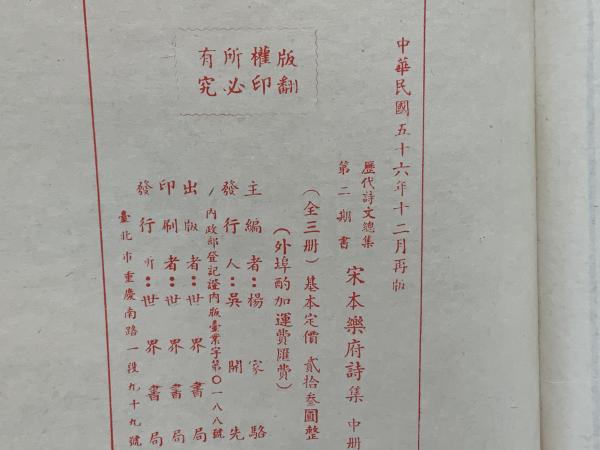 中華民國五十六年十二月再版
歷代詩文總集
第二期書
宋本樂府詩集 中冊
(全三冊)基本定價 貳拾叁圓整
(外埠酌加運費匯費)
主編者：楊家駱
發行人：吳開先
內政部登記證內版臺業字第〇一八八號
出版者：世界書局
印刷者：世界書局
發行所：世界書局
臺北市重慶南路一段九十九號
版權所有
翻印必究